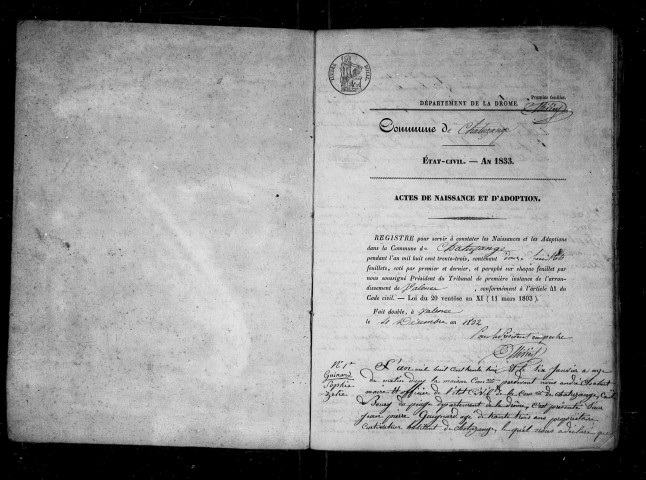 Premier feuillet.
DÉPARTEMENT DE LA DROME.
Commune de Chatuzange
ÉTAT-CIVIL. — AN 1833.
ACTES DE NAISSANCE ET D'ADOPTION.
REGISTRE pour servir à constater les Naissances et les Adoptions
dans la Commune de Chatuzange
pendant l'an mil huit cent trente-trois, contenant douze feuillets
feuillets, coté par premier et dernier, et paraphé sur chaque feuillet par
nous soussigné Président du Tribunal de première instance de l'arron-
dissement de Valence, conformément à l'article 41 du
Code civil. — Loi du 20 ventôse an XI (11 mars 1803).
Fait double, à Valence
le Décembre an 1832
Pour le Président empêché
N° 1er
Guinard
Sophie
L'an mil huit cent trente trois et le dix Janvier a
du matin dans la maison Com par devant nous
maire et officier de l'état civil de la Com de Chatuzange,
Bourg du péage département de la drome, c'est présenté Sieur
jean pierre Guignard age de trente trois ans propriétaire
Cultivateur habitant de Chatuzange, lequel nous a déclaré que